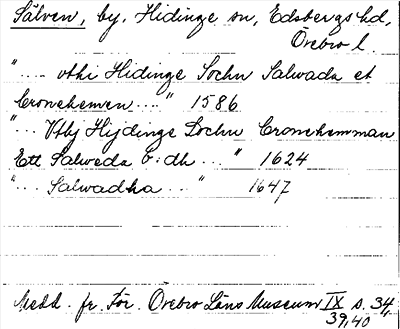 Sälven, by. Hidinge sn, Edsbergs hd,
Örebro l.
"... vthi Hidinge Sochn Salwada et
Cronehemen...." 1586
"... Vtbj Hijdinge Sochn Cronehemman
Ett Salweda b:dh ... " 1624
"... Salwadha ... " 1647
Medd. fr. För. Örebro Läns Museum IX s. 34,
39,40